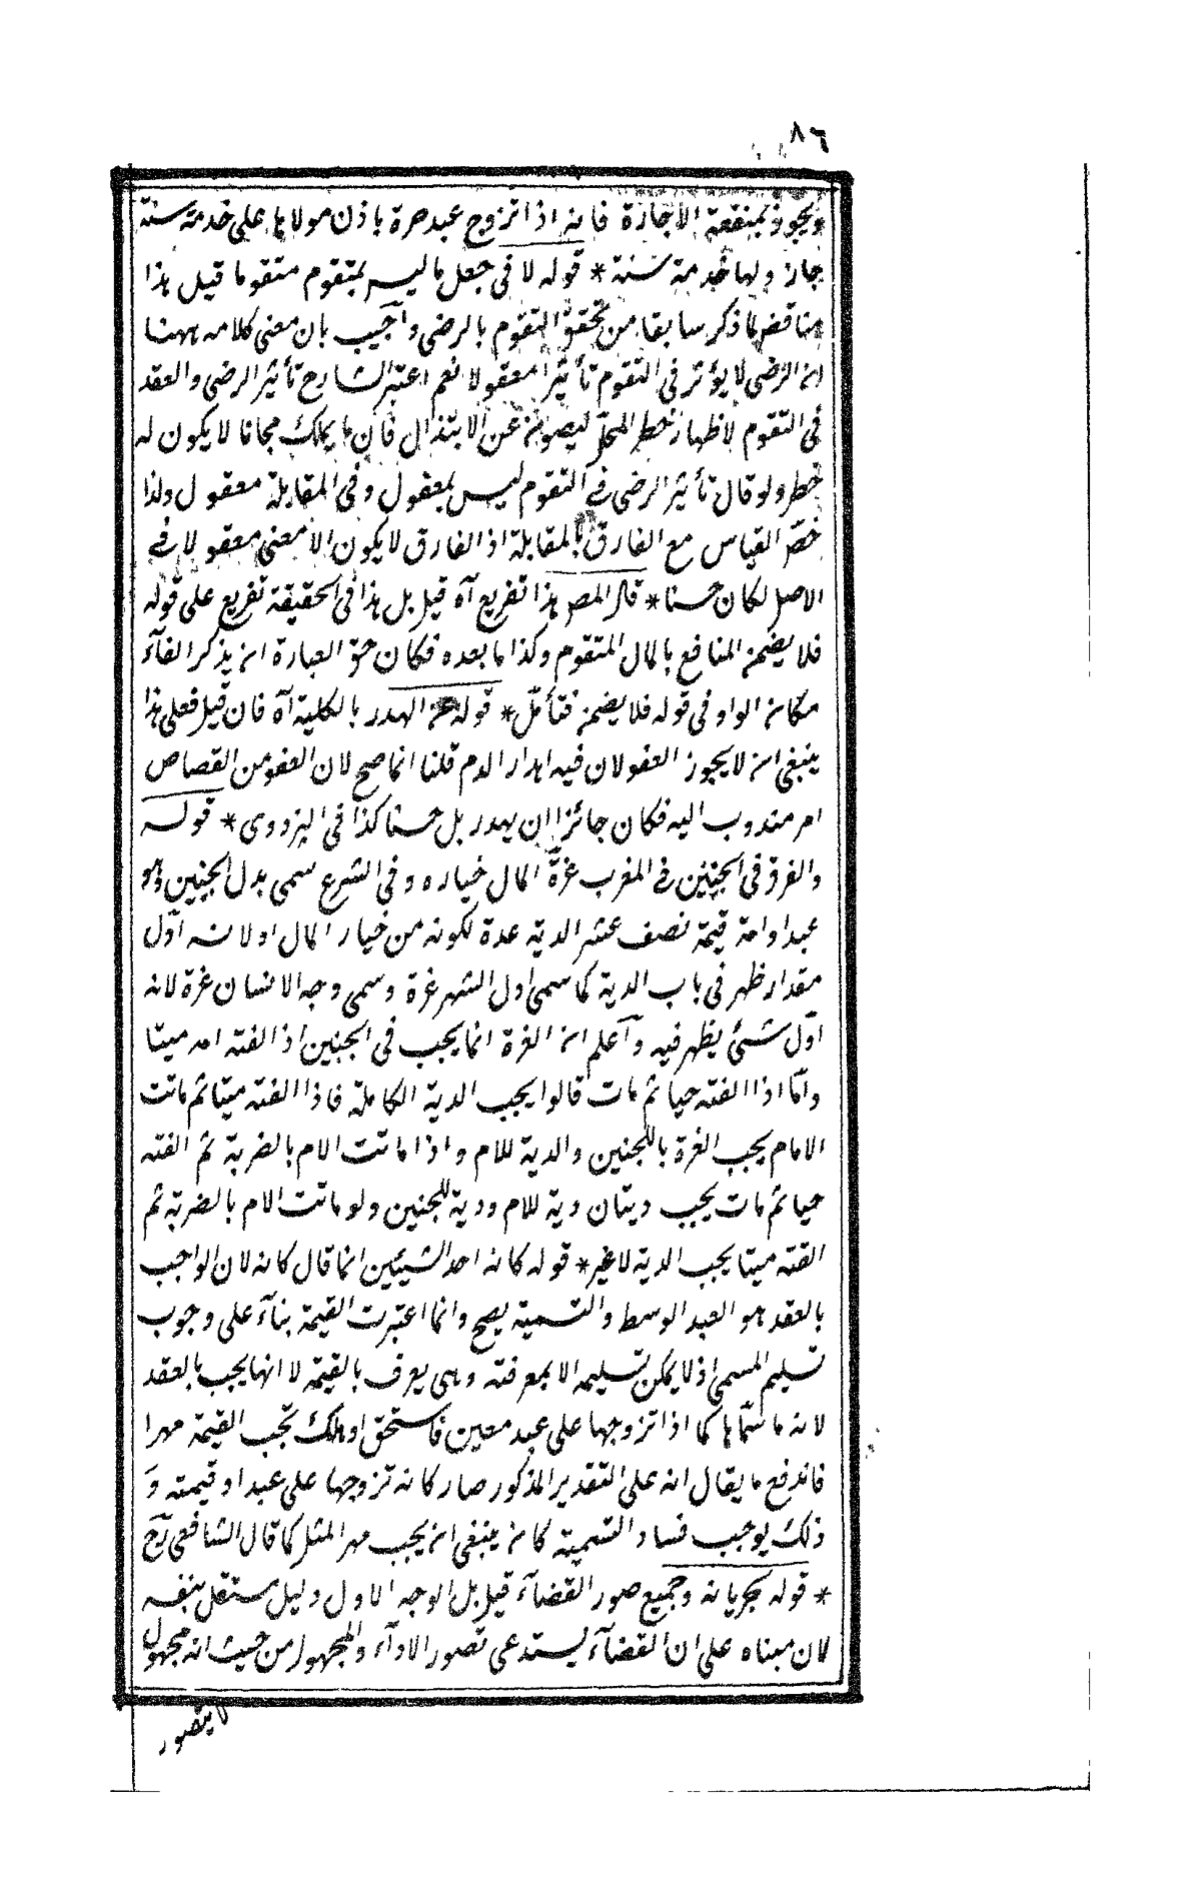 ٨٦
ويجوز بمنفعة الاجارة فانه اذا تزوج عبد حرة باذن مولاها على خدمة سنة
جاز ولها خدمة سنة * قوله لا فى جعل ما ليس بمتقوم متقوما قيل هذا
مناقض لما ذكر سابقا من تحقق التقوم بالرضى وأجيب بان معنى كلامه ههنا
ان الرضى لا يؤثر فى التقوم تأثيرا معقولا نعم اعتبر الشارح تأثير الرضى والعقد
فى التقوم لاظهار خطر المحل ليصونه عن الابتذال فان ما يملك مجانا لا يكون له
خطر ولو قال تأثير الرضى فى التقوم ليس بمعقول وفى المقابلة معقول ولذا
خص القياس مع الفارق بالمقابلة اذ الفارق لا يكون الا معنى معقولا فى
الاصل لكان حسنا * قال المص هذا تفريع آه قيل بل هذا فى الحقيقة تفريع على قوله
فلا يضمن المنافع بالمال المتقوم وكذا ما بعده فكان حق العبارة ان يذكر الفآء
مكان الواو فى قوله فلا يضمن فتأمل * قوله عن الهدر بالكلية آه فان قيل فعلى هذا
ينبغى ان لا يجوز العفو لان فيه اهدار الدم قلنا انما صح لان العفو من القصاص
امر مندوب اليه فكان جائزا ان يهدر بل حسنا كذا فى البزدوى * قوله
والفرق فى الجنين فى المغرب غرة المال خياره وفى الشرع سمى بدل الجنين وهو
عبد او امة قيمة نصف عشر الدية عدة لكونه من خيار المال او لانه أول
مقدار ظهر فى باب الدية كما سمى اول الشهر غرة وسمى وجه الانسان غرة لانه
اول شئ يظهر فيه وآعلم ان الغرة انما يجب فى الجنين اذ الفته امه ميتا
وأما اذا الفته حيا ثم مات قالوا يجب الدية الكاملة فاذا الفته ميتا ثم ماتت
الامام يجب الغرة باللجنين والدية للام واذا ماتت الام بالضربة ثم الفته
حيا ثم مات يجب ديتان دية للام ودية للجنين ولو ماتت الام بالضربة ثم
الفته ميتا يجب الدية لا غير * قوله كانه احد الشيئين انما قال كانه لان الواجب
بالعقد هو العبد الوسط والتسمية يصح وانما اعتبرت القيمة بنآء على وجوب
تسليم المسمى اذ لا يمكن تسليمه الا بمعرفته وهى يعرف بالقيمة لا انها يجب بالعقد
لانه ما سماها كما اذا تزوجها على عبد معين فاستحق او هلك تجب القيمة مهرا
فاندفع ما يقال انه على التقدير المذكور صار كانه تزوجها على عبد او قيمته و
ذلك يوجب فساد التسمية كان ينبغى ان يجب مهر المثل كما قال الشافعى رح
* قوله بجريانه وجميع صور القضآء قيل بل الوجه الاول دليل مستقل بنفسه
لان مبناه على ان القضآء يستدعى تصور الادآء والمجهول من حيث انه مجهول
لا يتصور